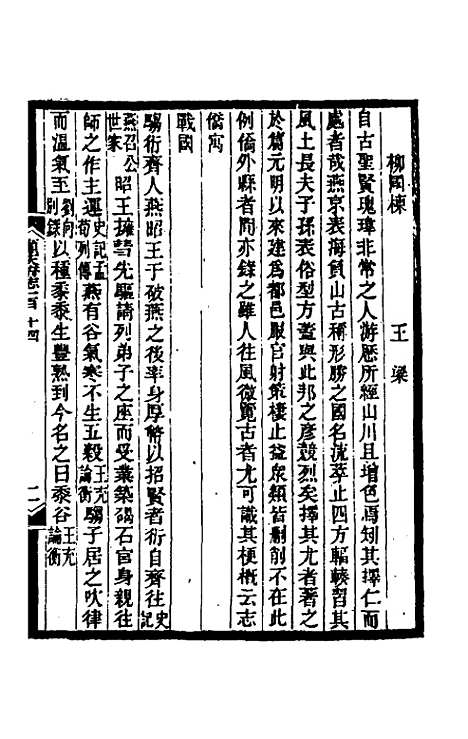 柳国栋　王梁
自古聖賢瑰瑋非常之人游歷所經山川且增色焉矧其擇仁而
處者哉燕京表海負山古稱形勝之國名流萃止四方輻輳習其
風土長夫子孫表俗型方蓋與此邦之彥競烈矣擇其尤者著之
於篇元明以來建爲都邑服官射策棲止益衆類皆刪削不在此
例僑外縣者間亦錄之雖人往風微覽古者尤可識其梗概云志
僑寓
戰國
騶衍齊人燕昭王于破燕之後卑身厚幣以招賢者衍自齊往史記
燕召公世家昭王擁彗先驅請列弟子之座而受業築碣石宮身親往
師之作主運史記孟荀列傳燕有谷氣寒不生五穀王充論衡騶子居之吹律
而溫氣至劉向別錄以種黍黍生豐熟到今名之曰黍谷王充論衡
順天府志一百十四